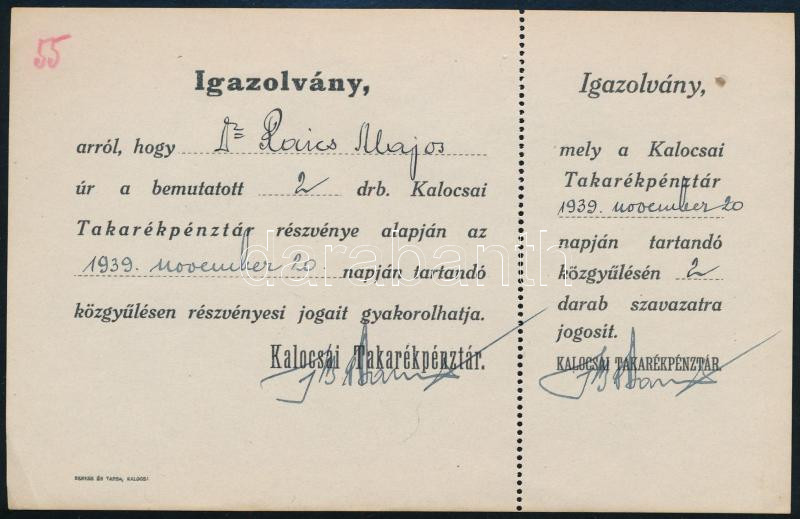 55
Igazolvány,
arról, hogy Dr Raics Majos
úr a bemutatott 2 drb. Kalocsai
Takarékpénztár részvénye alapján az
1939. november 20. napján tartandó
közgyűlésen részvényesi jogait gyakorolhatja.
Kalocsai Takarékpénztár.
ÉS TÁRSA, KALOCSA
Igazolvány,
mely a Kalocsai
Takarékpénztár
1939. november 20
napján tartandó
közgyűlésén 2
darab szavazatra
jogosít.
KALOCSAI TAKARÉKPÉNZTÁR.
darabanth